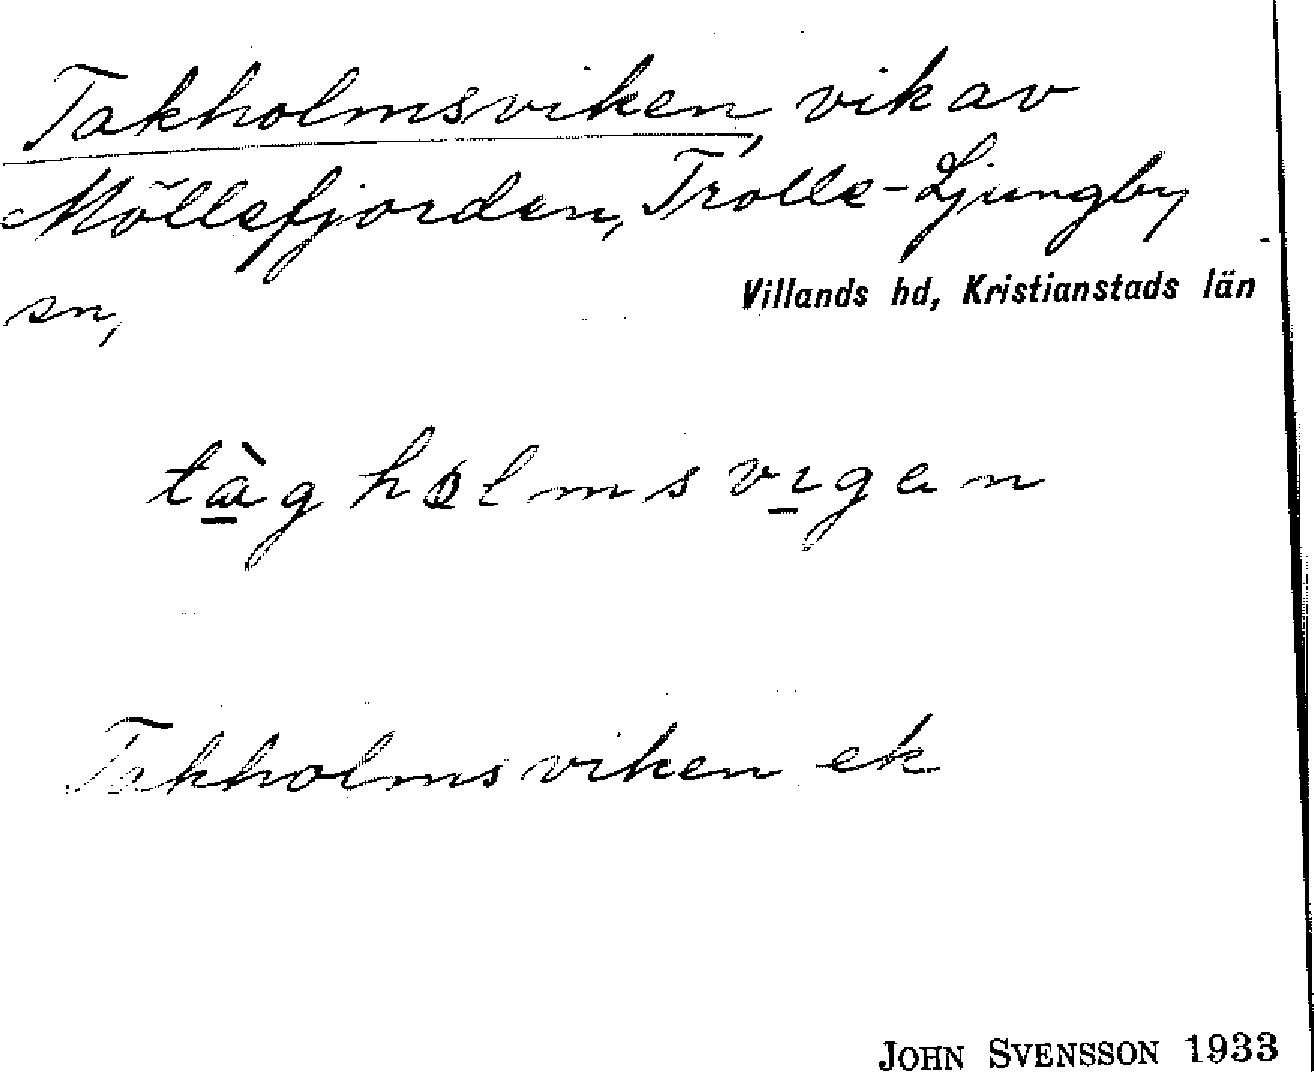 Takholmsviken, vik av
Möllefjorden, Trolle-Ljungby
sn,
Villands hd, Kristianstads län
tàgholmsvigen
Takholmsviken ek
JOHN SVENSSON 1933